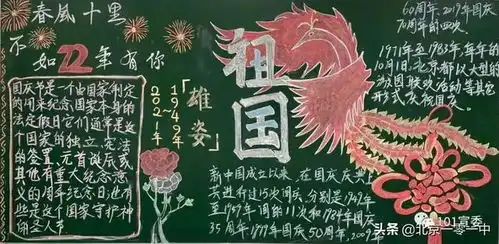 春風十里
不如22年有你
国庆节是一个由国家制定
的用来纪念国家本身的
法定假日它们通常是这
个国家的独立、宪法
的签署、元首诞辰或
其他有重大纪念意
义的周年纪念日;也有
些是这个国家守护神
的圣人节
1949年
2021年
「雄姿」
祖国
新中国成立以来，在国庆庆典上
共进行过15次阅兵，分别是1949年
至1959年间的11次和1984年国庆
35周年、1999年国庆50周年、2009年
60周年、2019年国庆
70周年的四次。
1971年至1983年，每年的
10月1日，北京都以大型的
游园联欢活动等其
他形式庆祝国庆。
101宣委
头条@北京一零一中